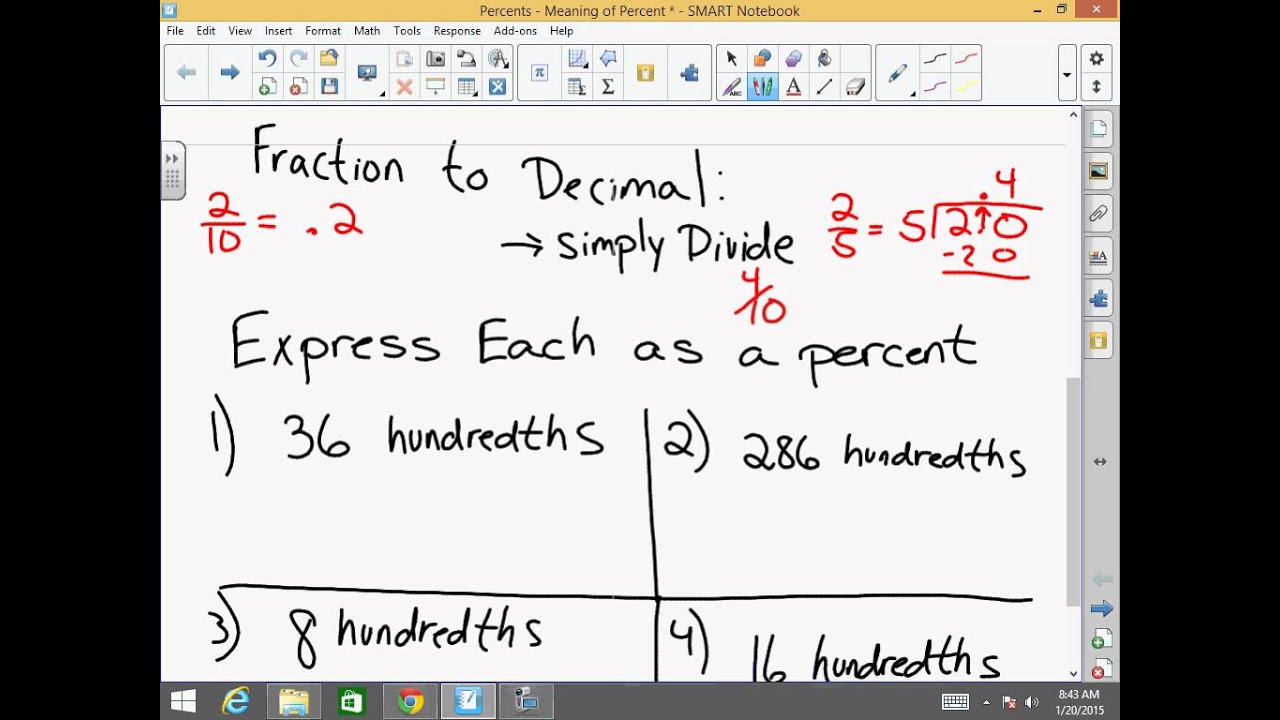 Percents - Meaning of Percent * - SMART Notebook
File Edit View Insert Format Math Tools Response Add-ons Help
Fraction to Decimal:
2/10 = .2
→ Simply Divide
2/5 = 5)2.0
.4
-2 0
4/10
Express Each as a percent
1) 36 hundredths
2) 286 hundredths
3) 8 hundredths
4) 16 hundredths
8:43 AM
1/20/2015